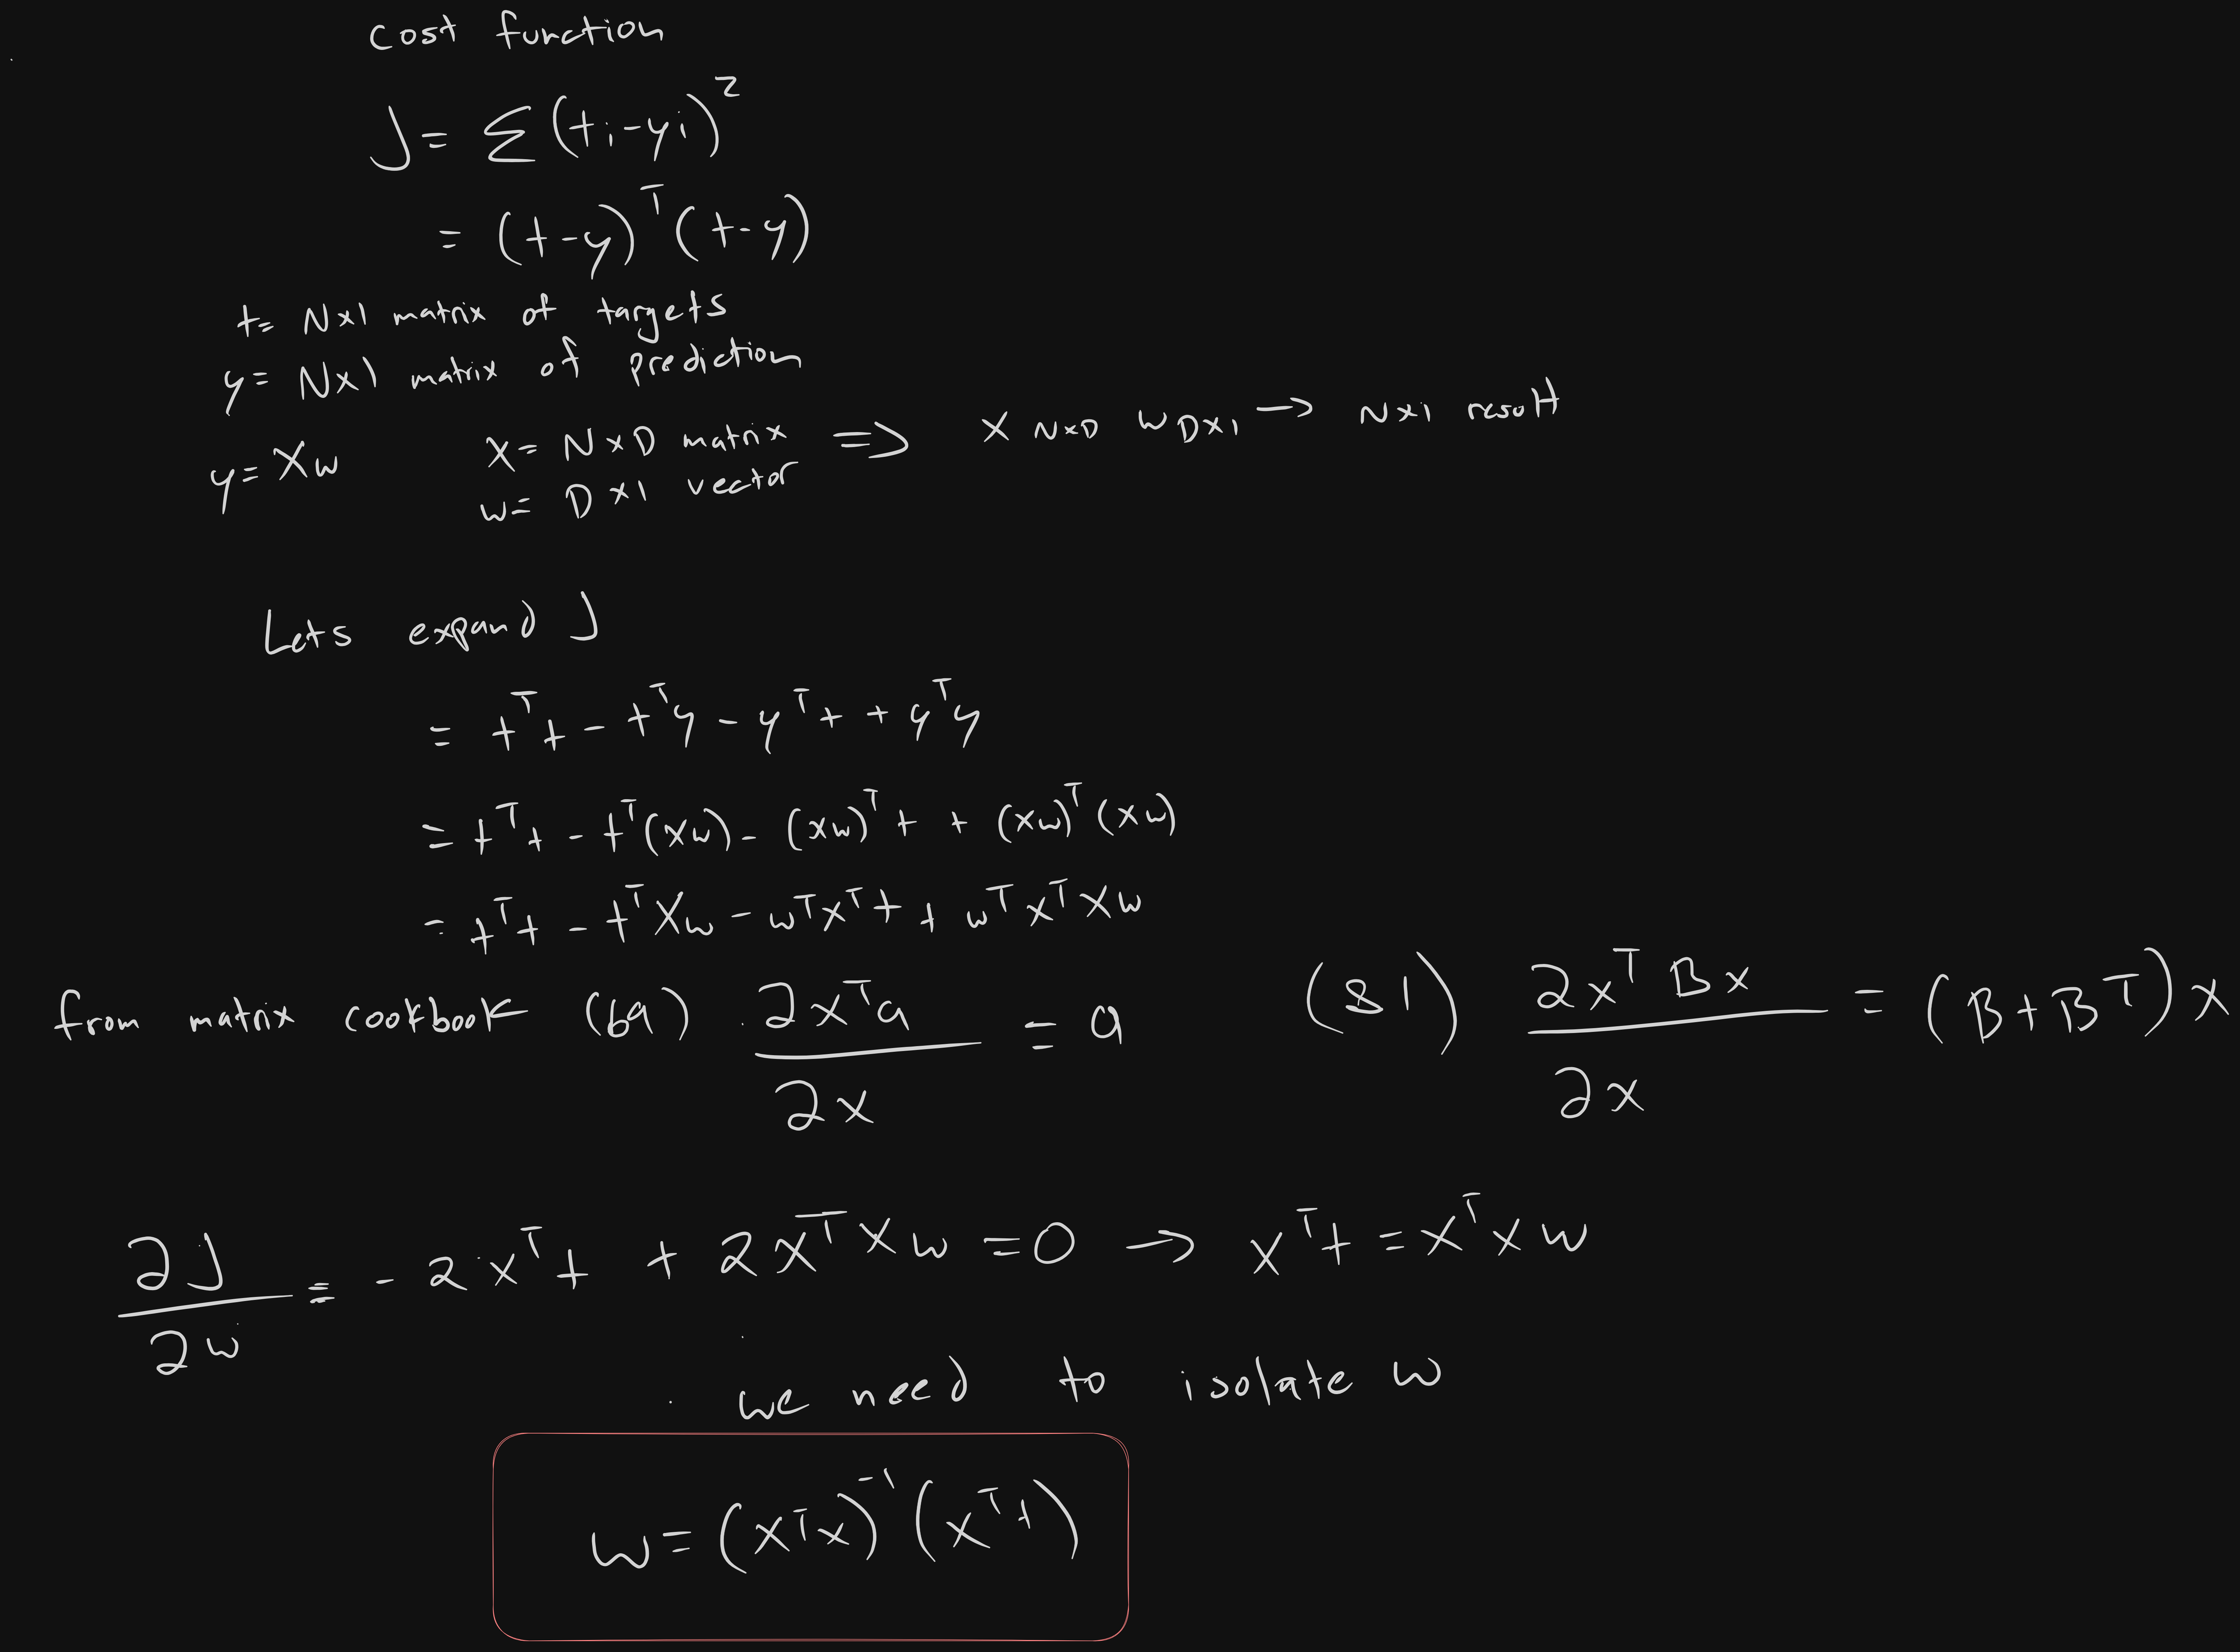 cost function
J = Σ(ti - yi)²
= (t - y)ᵀ (t - y)
t = Nx1 matrix of targets
y = Nx1 matrix of prediction
y = Xw X = NxD matrix ⇒ X NxD w Dx1 → Nx1 result
w = Dx1 vector
Lets expand J
= tᵀt - tᵀy - yᵀt + yᵀy
= tᵀt - tᵀ(Xw) - (Xw)ᵀt + (Xw)ᵀ(Xw)
= tᵀt - tᵀXw - wᵀXᵀt + wᵀXᵀXw
from matrix cookbook (69) ∂xᵀa / ∂x = a (81) ∂xᵀBx / ∂x = (B+Bᵀ)x
∂J / ∂w = -2Xᵀt + 2XᵀXw = 0 → Xᵀt = XᵀXw
we need to isolate w
w = (XᵀX)⁻¹(Xᵀt)